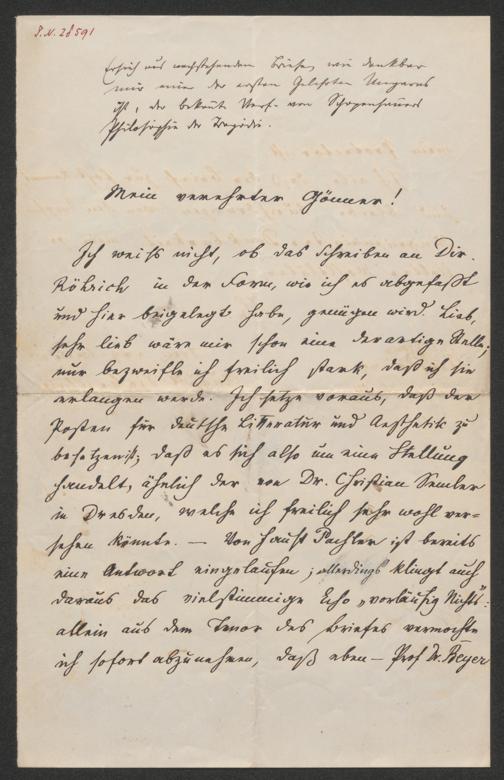 I.N. 28591
Ersieh aus nachstehendem Briefe, wie dankbar
mir einer der ersten Gelehrten Ungarns
ist, der bekannte Verf. von Schopenhauers
Philosophie der Tragödie.
Mein verehrter Gönner!
Ich weiß nicht, ob das Schreiben an Dir.
Röhrich in der Form, wie ich es abgefaßt
und hier beigelegt habe, genügen wird. Lieb,
sehr lieb wäre mir schon eine derartige Stelle;
nur bezweifle ich freilich stark, daß ich sie
erlangen werde. Ich setze voraus, daß der
Posten für deutsche Litteratur und Aesthetik zu
besetzen ist; daß es sich also um eine Stellung
handelt, ähnlich der von Dr. Christian Semler
in Dresden, welche ich freilich sehr wohl ver=
sehen könnte. — Von Faust Pachler ist bereits
eine Antwort eingelaufen; allerdings klingt auch
daraus das vielstimmige Echo „vorläufig Nichts":
allein aus dem Tenor des Briefes vermochte
ich sofort abzunehmen, daß eben — Prof. Dr. Beyer